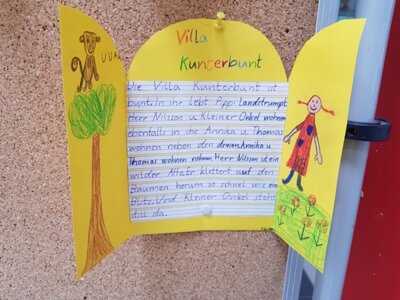 Villa
Kunterbunt
UUAA
Die Villa Kunterbunt ist
bunt. In ihr lebt Pippi Landstrumpf
Herr Nilsson u. Kleiner Onkel wohnen
ebenfalls in ihr Annika u. Thomas
wohnen neben den dreien Annika u.
Thomas wohnen nebenan. Herr Nilsson ist ein
wilder Affe er klettert auf den
Bäumen herum so schnell wie ein
Blitz. Und Kleiner Onkel steht
still da.